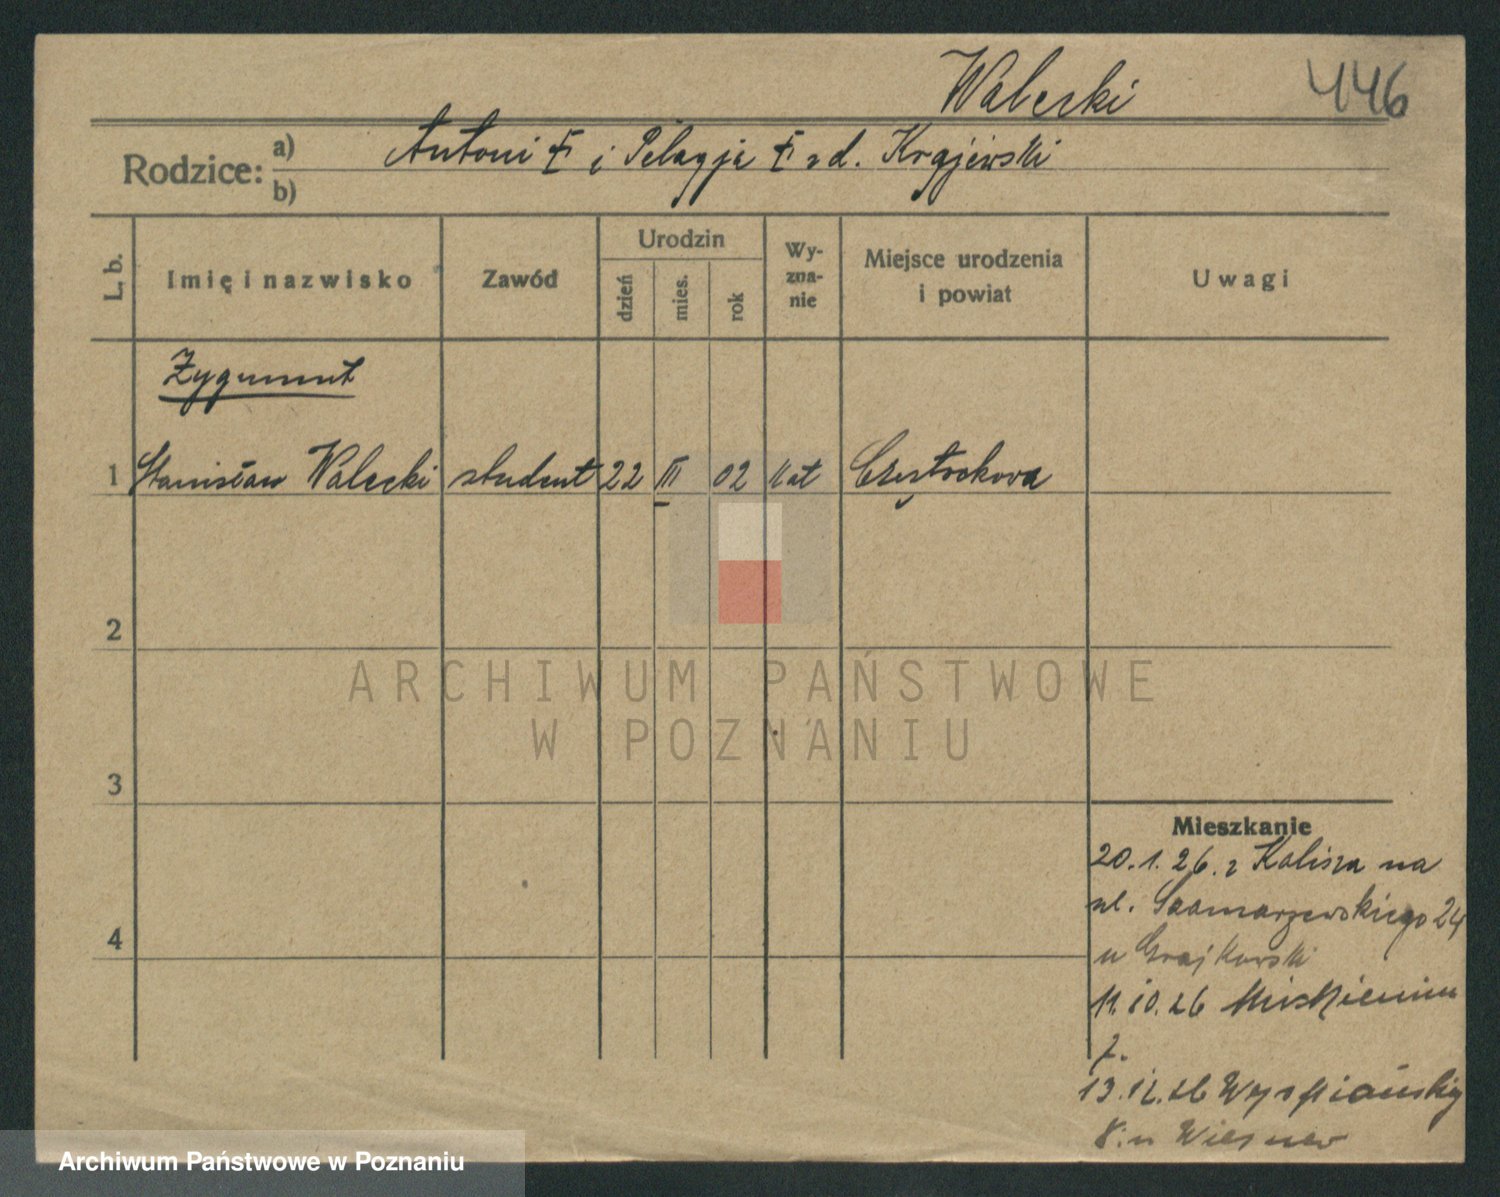 Walecki 446
Rodzice: a) Antoni i Pelagja z d. Krajewski
b)
L. b. Imię i nazwisko Zawód Urodzin dzień mies. rok Wyznanie Miejsce urodzenia i powiat Uwagi
Zygmunt
1 Stanisław Walecki student 22 III 02 kat Częstochowa
2
ARCHIWUM PAŃSTWOWE
W POZNANIU
3
Mieszkanie
20.1.26. z Kalisza na
ul. Szamarzewskiego 24
4
u Grajkowski
11.10.26
7.
13.12.26
8. u
Archiwum Państwowe w Poznaniu